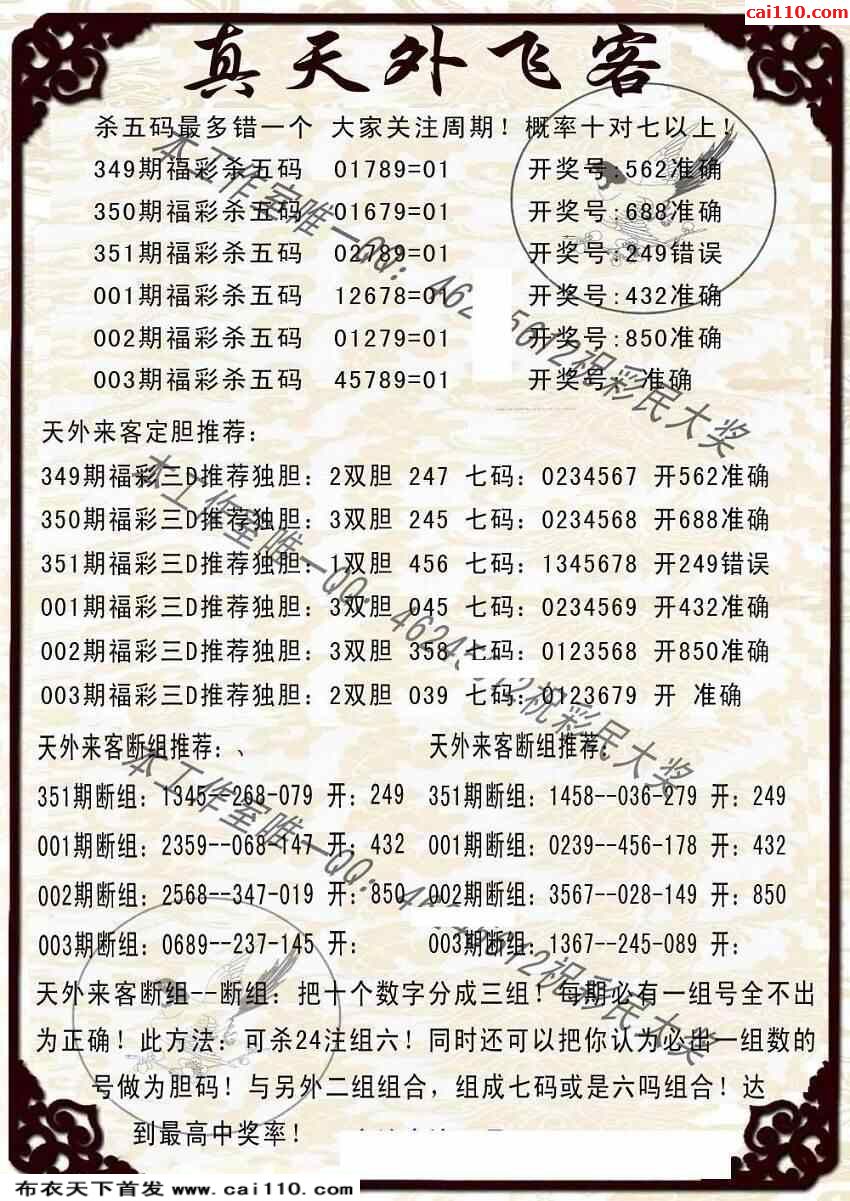 cai110.com
真天外飞客
杀五码最多错一个 大家关注周期！概率十对七以上！
349期福彩杀五码 01789=01 开奖号:562准确
350期福彩杀五码 01679=01 开奖号:688准确
351期福彩杀五码 02789=01 开奖号:249错误
001期福彩杀五码 12678=01 开奖号:432准确
002期福彩杀五码 01279=01 开奖号:850准确
003期福彩杀五码 45789=01 开奖号 准确
天外来客定胆推荐：
349期福彩三D推荐独胆：2双胆 247 七码：0234567 开562准确
350期福彩三D推荐独胆：3双胆 245 七码：0234568 开688准确
351期福彩三D推荐独胆：1双胆 456 七码：1345678 开249错误
001期福彩三D推荐独胆：3双胆 045 七码：0234569 开432准确
002期福彩三D推荐独胆：3双胆 358 七码：0123568 开850准确
003期福彩三D推荐独胆：2双胆 039 七码：0123679 开 准确
天外来客断组推荐：、 天外来客断组推荐：
351期断组：1345--268-079 开：249 351期断组：1458--036-279 开：249
001期断组：2359--068-147 开：432 001期断组：0239--456-178 开：432
002期断组：2568--347-019 开：850 002期断组：3567--028-149 开：850
003期断组：0689--237-145 开： 003期断组：1367--245-089 开：
天外来客断组--断组：把十个数字分成三组！每期必有一组号全不出
为正确！此方法：可杀24注组六！同时还可以把你认为必出一组数的
号做为胆码！与另外二组组合，组成七码或是六吗组合！达
到最高中奖率！
本工作室唯一QQ：462 5612祝彩民大奖
本工作室唯一QQ：4624 12祝彩民大奖
本工作室唯一QQ：46 5612祝彩民大奖
布衣天下首发 www.cai110.com